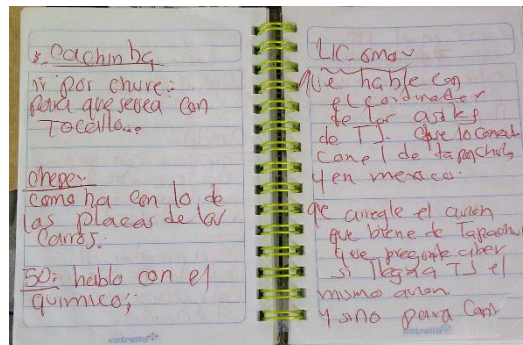 * Cachimba
ir por chure:
para que se vea con
Tocallo...
chepe:
como ha con lo de
las placas de los
Carros.
50: hablo con el
quimico;
estrella
LIC. omar
que hable con
el cordinador
de los
de TJ. que lo conecte
con el de tapachula
y en mexico.
que arregle el avion
que biene de Tapachu
que pregunte
si llega TJ el
mismo avion
y sino para
estrella